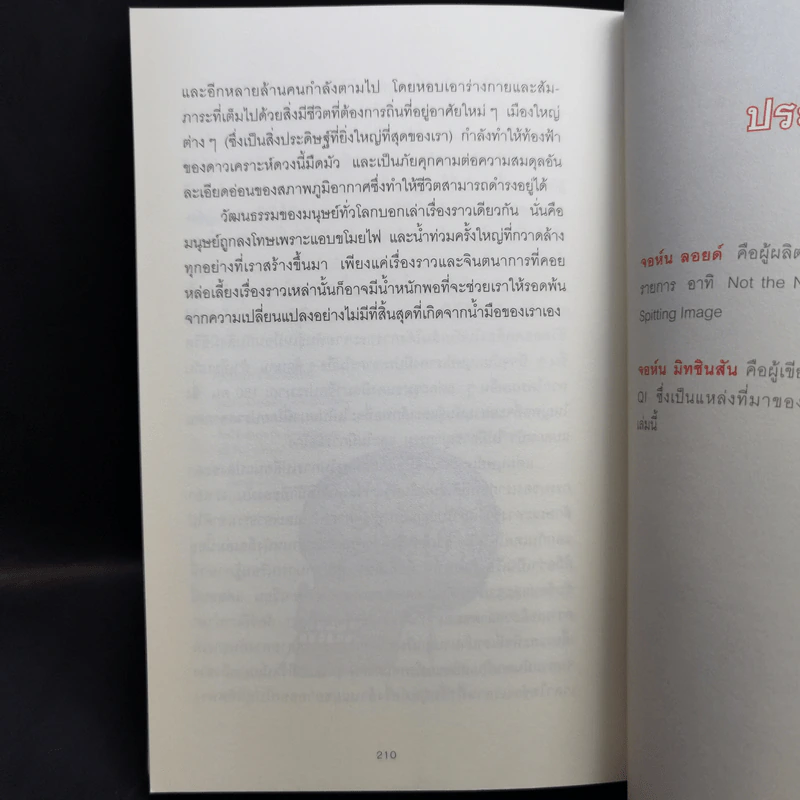 และอีกหลายล้านคนกำลังตามไป โดยหอบเอาร่างกายและสัม-
ภาระที่เต็มไปด้วยสิ่งมีชีวิตที่ต้องการถิ่นที่อยู่อาศัยใหม่ ๆ เมืองใหญ่
ต่าง ๆ (ซึ่งเป็นสิ่งประดิษฐ์ที่ยิ่งใหญ่ที่สุดของเรา) กำลังทำให้ท้องฟ้า
ของดาวเคราะห์ดวงนี้มืดมัว และเป็นภัยคุกคามต่อความสมดุลอัน
ละเอียดอ่อนของสภาพภูมิอากาศซึ่งทำให้ชีวิตสามารถดำรงอยู่ได้
วัฒนธรรมของมนุษย์ทั่วโลกบอกเล่าเรื่องราวเดียวกัน นั่นคือ
มนุษย์ถูกลงโทษเพราะแอบขโมยไฟ และน้ำท่วมครั้งใหญ่ที่กวาดล้าง
ทุกอย่างที่เราสร้างขึ้นมา เพียงแค่เรื่องราวและจินตนาการที่คอย
หล่อเลี้ยงเรื่องราวเหล่านั้นก็อาจมีน้ำหนักพอที่จะช่วยเราให้รอดพ้น
จากความเปลี่ยนแปลงอย่างไม่มีที่สิ้นสุดที่เกิดจากน้ำมือของเราเอง
210
จอห์น ลอยด์ คือผู้ผลิต
รายการ อาทิ Not the N
Spitting Image
จอห์น มิทชินสัน คือผู้เขีย
QI ซึ่งเป็นแหล่งที่มาของ
เล่มนี้